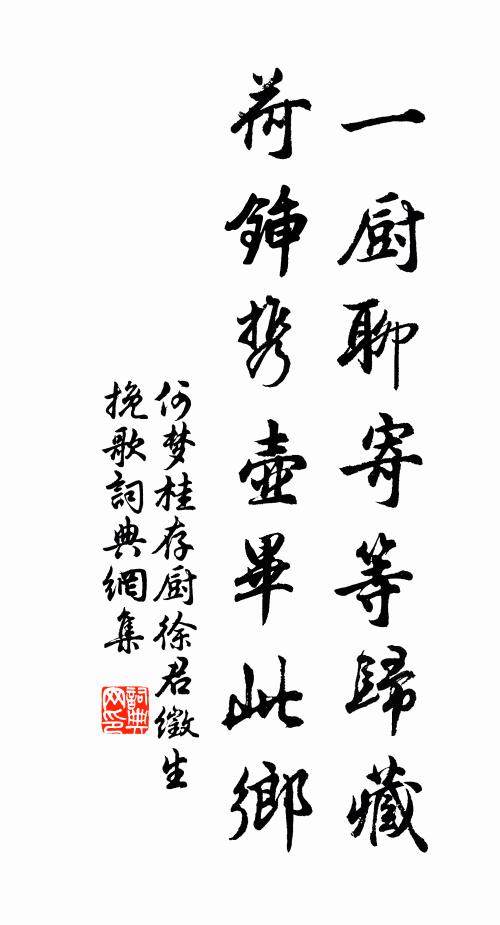 一厨聊寄等歸藏
荷鍤攜壺畢此鄉
何梦桂存厨徐君徵生
挽歌詞典網集
詞典
网印